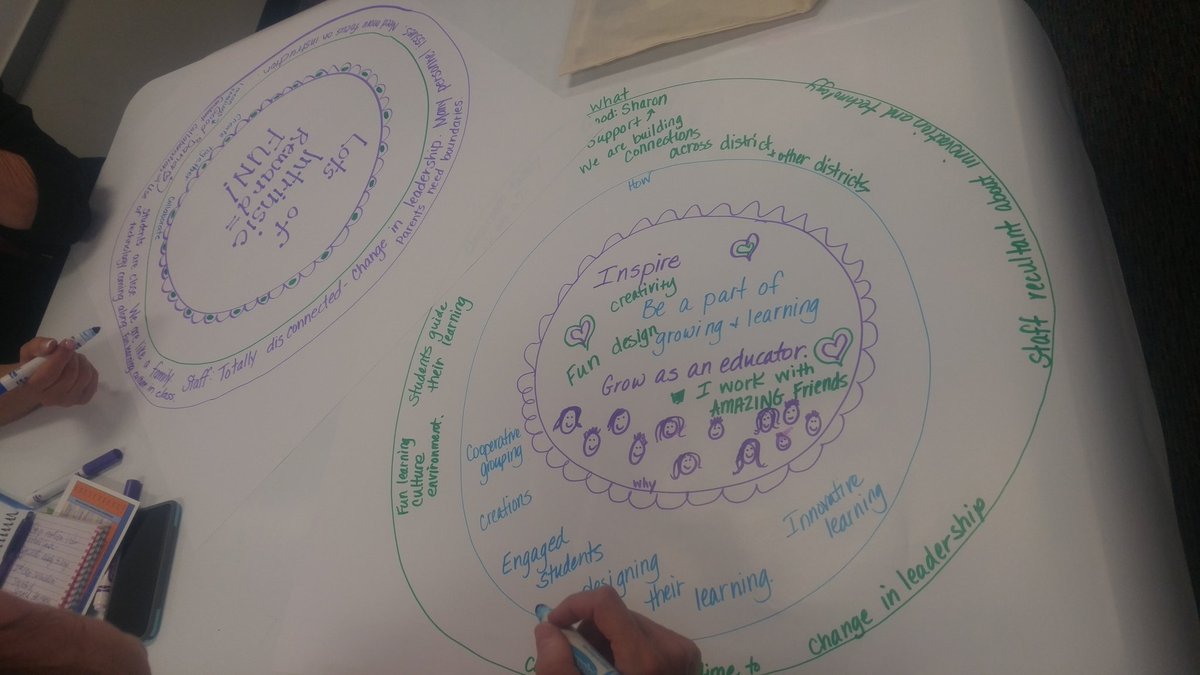 what
Sharon
support
We are building
connections
across district
+ other districts
Staff recruitant about innovation and technology
change in leadership
Students guide
their learning
Fun learning
culture
environment.
How
Cooperative
grouping
Creations
Engaged
Students
designing
their learning.
Innovative
learning
Inspire
creativity
Be a part of
growing + learning
Fun design
Grow as an educator.
I work with
AMAZING Friends
why
Lots
of
Intrinsic
Reward =
FUN!
Need more focus on instruction
Many personnel issues.
Parents need boundaries
Staff: Totally disconnected - change in leadership
Students are close. We are like a family
Collaborate